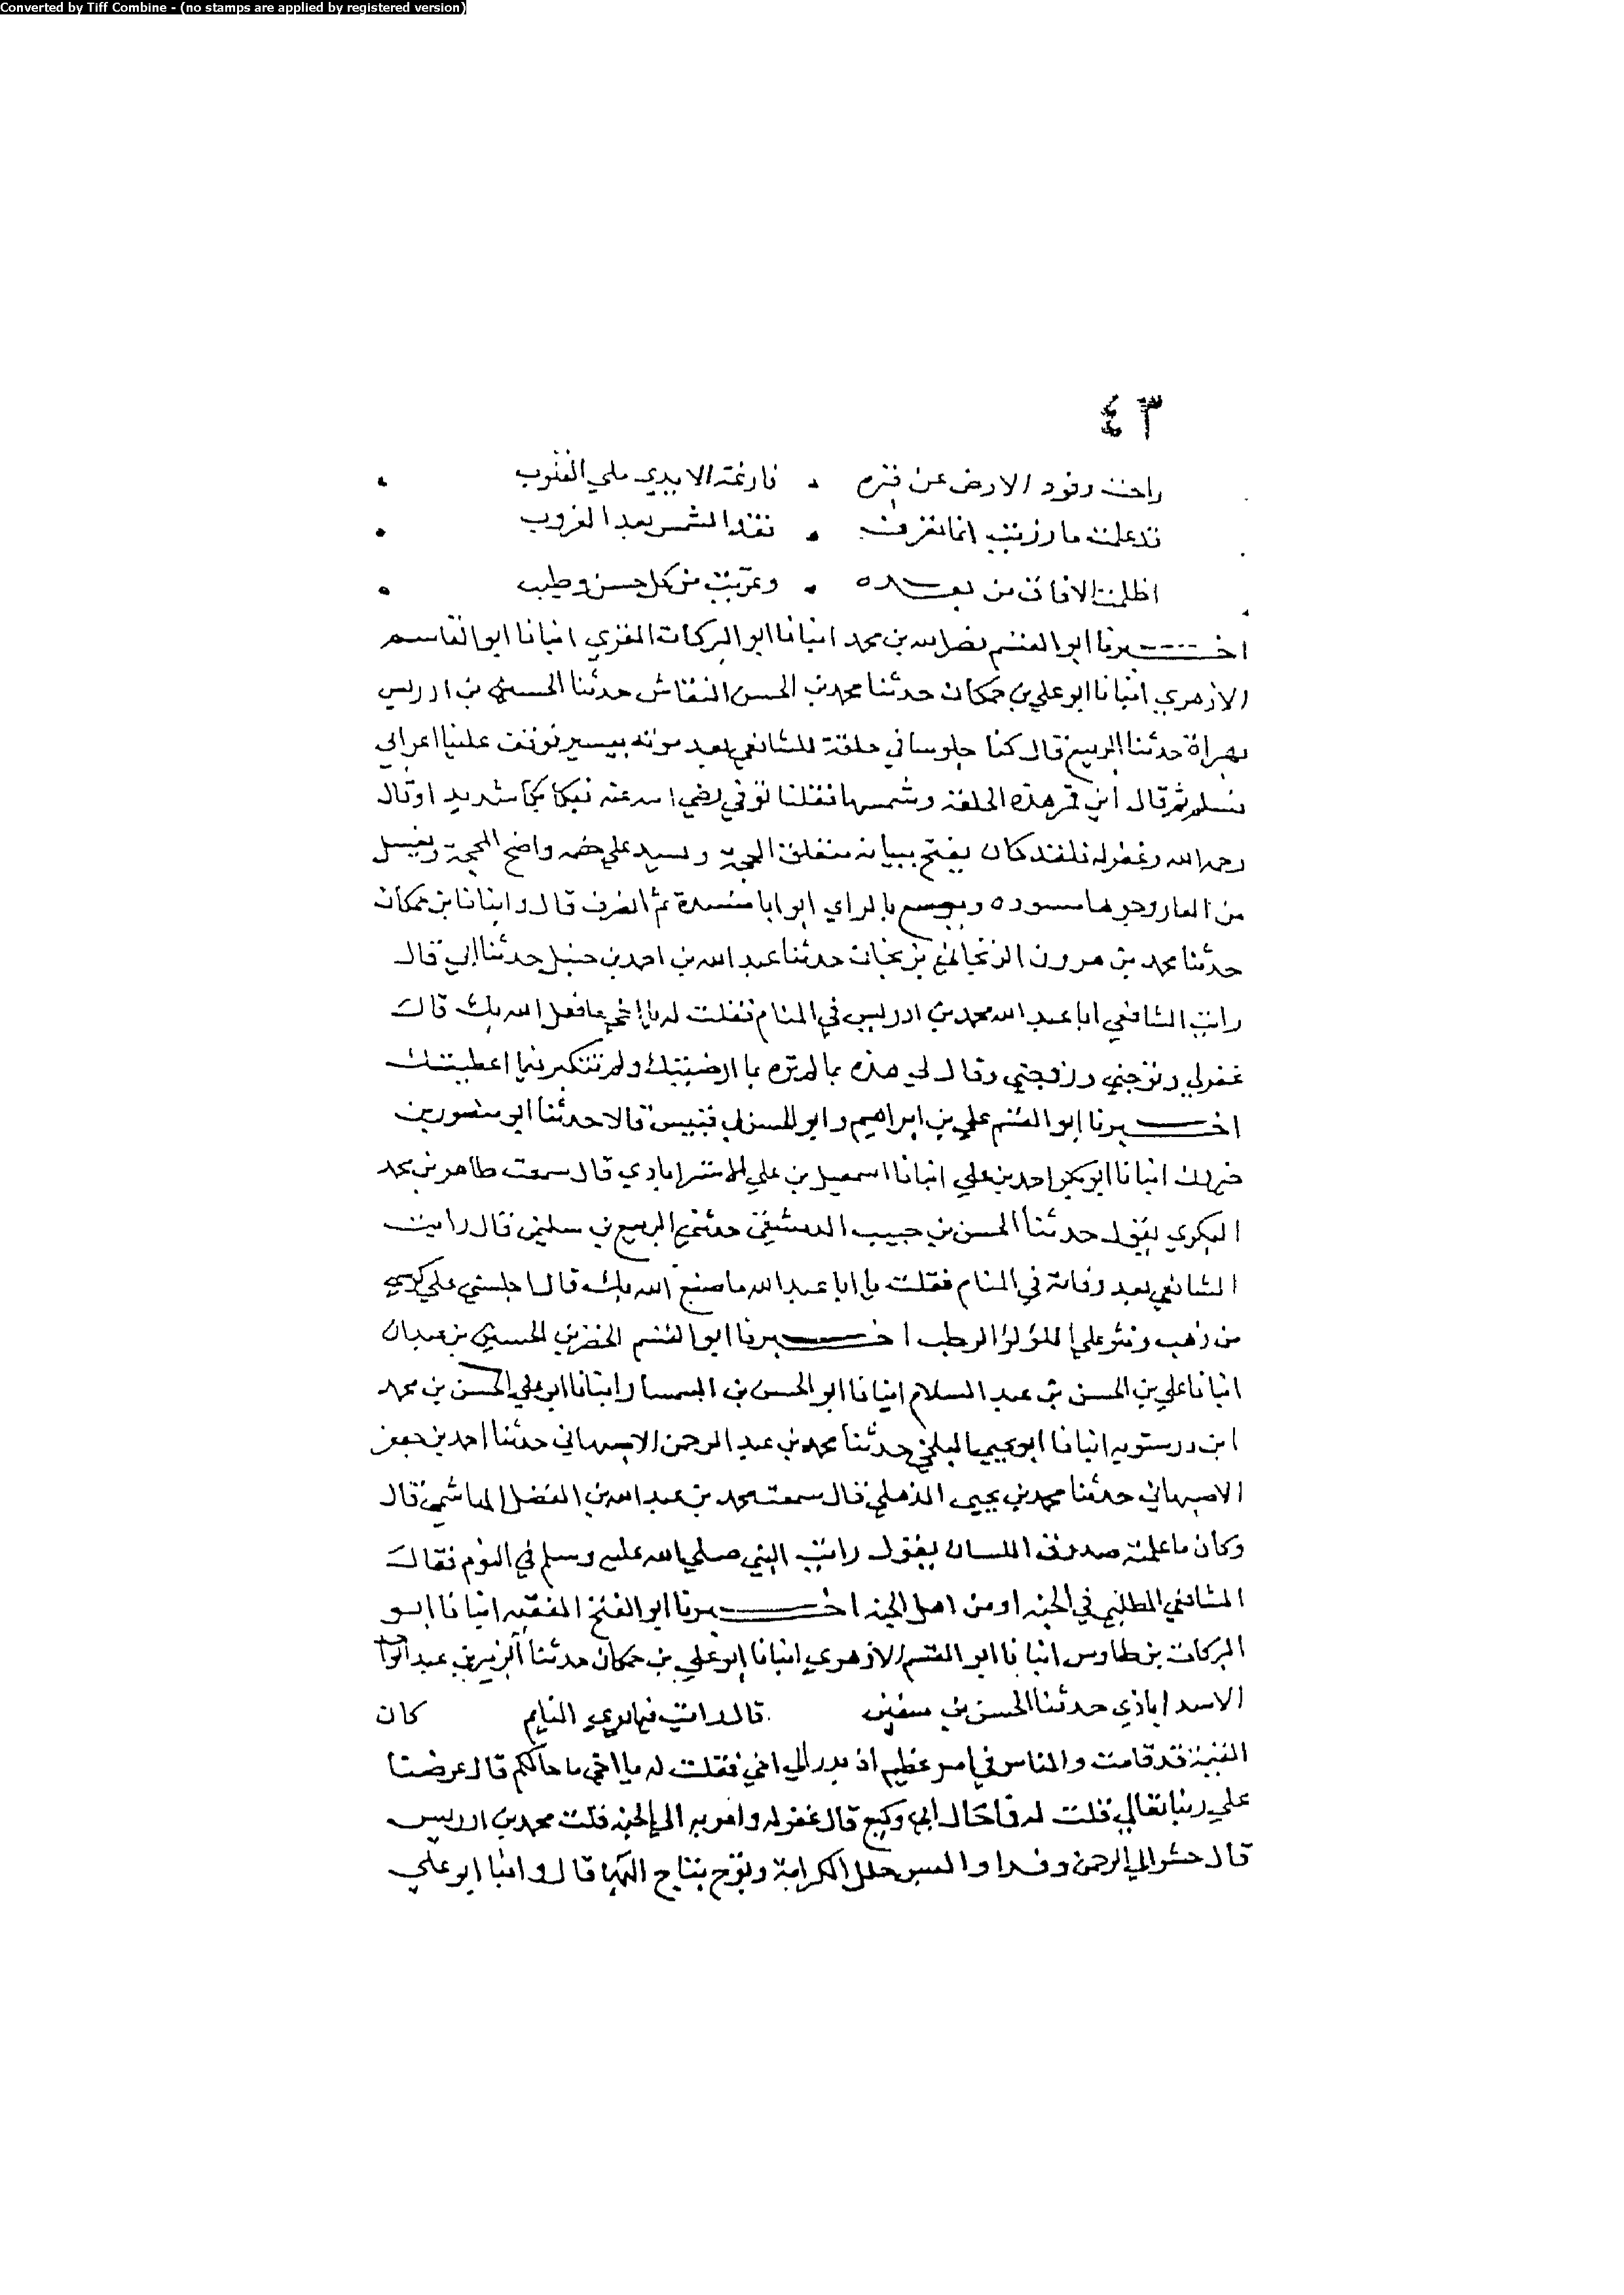 Converted by Tiff Combine - (no stamps are applied by registered version)
٤٣
راحت وفود الارض عن قبره فارغة الايدي ملي القلوب
قد علمت ما رزئت انما تعرف فقد الشمس بعد الغروب
اظلمت الافاق من بعده وعريت من كل حسن وطيب
اخبرنا ابو القسم نصر الله بن محمد انبانا ابو البركات المقري انبانا ابو القاسم
الازهري انبانا ابو علي بن حمكان حدثنا محمد بن الحسن النقاش حدثنا الحسين بن ادريس
بهراة حدثنا الربيع قال كنا جلوسا في حلقة للشافعي بعد موته بيسير فوقف علينا اعرابي
فسلم ثم قال اين قمر هذه الحلقة وشمسها فقلنا توفي رضي الله عنه فبكا بكا شديدا وقال
رحمه الله وغفر له فلقد كان يفتح ببيانه منغلق الحجة ويسد علي خصمه واضح المحجة ويغسل
من العار وجوها مسوده ويوسع بالراي ابوابا منسدة ثم انصرف قال وانبانا بن حمكان
حدثنا محمد بن هرون الزنجاني بزنجان حدثنا عبد الله بن احمد بن حنبل حدثنا ابي قال
رايت الشافعي ابا عبد الله محمد بن ادريس في المنام فقلت له يا اخي ما فعل الله بك قال
غفر لي وتوجني وزوجني وقال لي هذه بما لم تزه بما ارضيتك ولم تتكبر فيما اعطيتك
اخبرنا ابو القسم علي بن ابراهيم وابو الحسن بن قبيس قالا حدثنا ابو منصور بن
خيرون انبانا ابو بكر احمد بن علي انبانا اسمعيل بن علي الاستراباذي قال سمعت طاهر بن محمد
البكري يقول حدثنا الحسن بن حبيب الدمشقي حدثني الربيع بن سليمن قال رايت
الشافعي بعد وفاته في المنام فقلت يا ابا عبد الله ما صنع الله بك قال اجلسني علي كرسي
من ذهب ونثر علي اللؤلؤ الرطب اخبرنا ابو القسم الخضر بن الحسين بن عبدان
انبانا علي بن الحسن بن عبد السلام انبانا ابو الحسن بن السمسار انبانا ابو علي الحسن بن محمد
ابن درستويه انبانا ابو يحيي البلخي حدثنا محمد بن عبد الرحمن الاصبهاني حدثنا احمد بن جعفر
الاصبهاني حدثنا محمد بن يحيي الذهلي قال سمعت محمد بن عبد الله بن الفضل الهاشمي قال
وكان ما علمته صدوق اللسان يقول رايت النبي صلي الله عليه وسلم في النوم فقال
الشافعي المطلبي في الجنه او من اهل الجنه اخبرنا ابو الفتح الفقيه انبانا ابو
البركات بن طاوس انبانا ابو القسم الازهري انبانا ابو علي بن حمكان حدثنا الزبير بن عبد الواحد
الاسداباذي حدثنا الحسن بن سفين قال رايت فيما يري النايم كان
القيمة قد قامت والناس في امر عظيم اذ بدر الي اخي فقلت له يا اخي ما حالكم قال عرضنا
علي ربنا تعالي قلت له فما حال ابي وكيع قال غفر له وامر به الي الجنه قلت محمد بن ادريس
قال حشر الي الرحمن وفدا والبس حلل الكرامة وتوج بتاج البها قال وانبا ابو علي